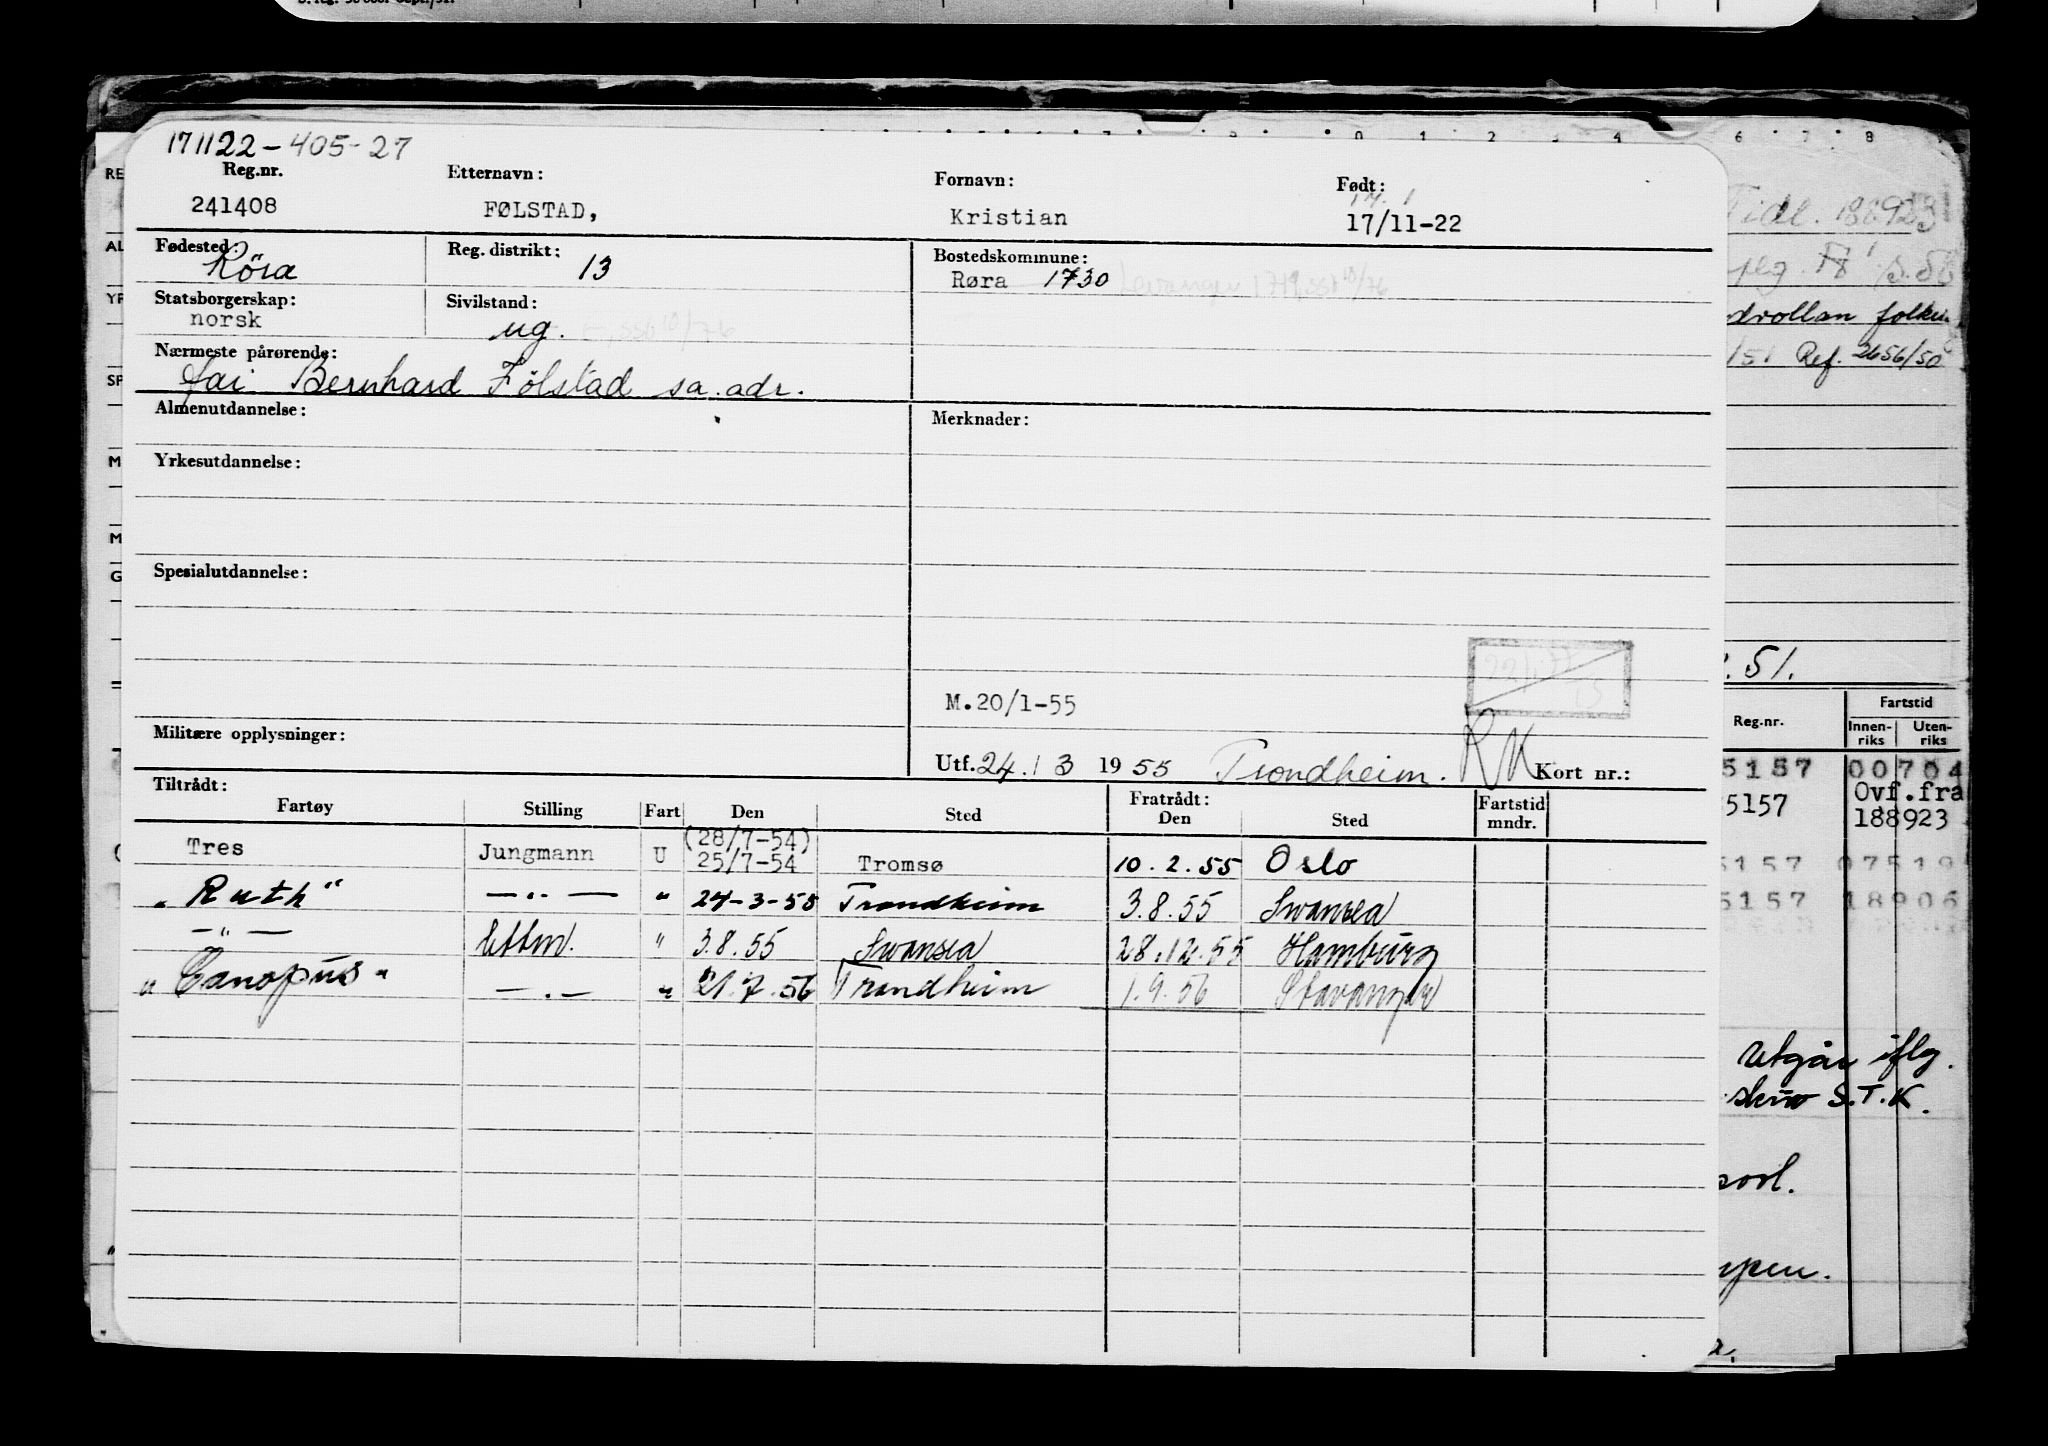 171122-405-27
Reg.nr. Etternavn: Fornavn: Født:
241408 FØLSTAD, Kristian 17/11-22
Fødested: Röra Reg. distrikt: 13 Bostedskommune: Røra 1730 Levanger 1719
Statsborgerskap: norsk Sivilstand: ug.
Nærmeste pårørende:
far Bernhard Følstad sa. adr.
Almenutdannelse: Merknader:
Yrkesutdannelse:
Spesialutdannelse:
M.20/1-55
Militære opplysninger:
Utf. 24. / 3 1955 Trondheim. RK Kort nr.:
Tiltrådt: Fratrådt:
Fartøy Stilling Fart Den Sted Den Sted Fartstid mndr.
(28/7-54)
Tres Jungmann U 25/7-54 Tromsø 10.2.55 Oslo
"Ruth" —..— " 24-3-55 Trondheim 3.8.55 Swansea
—"— lettm. " 3.8.55 Swansea 28.12.55 Hamburg
"Canopus" —.— " 21.7.56 Trondheim 1.9.56 Stavanger
6 7 8
Tidl. 188923
folke
/51 Ref. 2656/50
.51.
Reg.nr. Fartstid
Innen-riks Uten-riks
5157 00704
5157 Ovf.fra
188923
5157 07519
5157 18906
Utgår iflg.
skriv S.T.K.